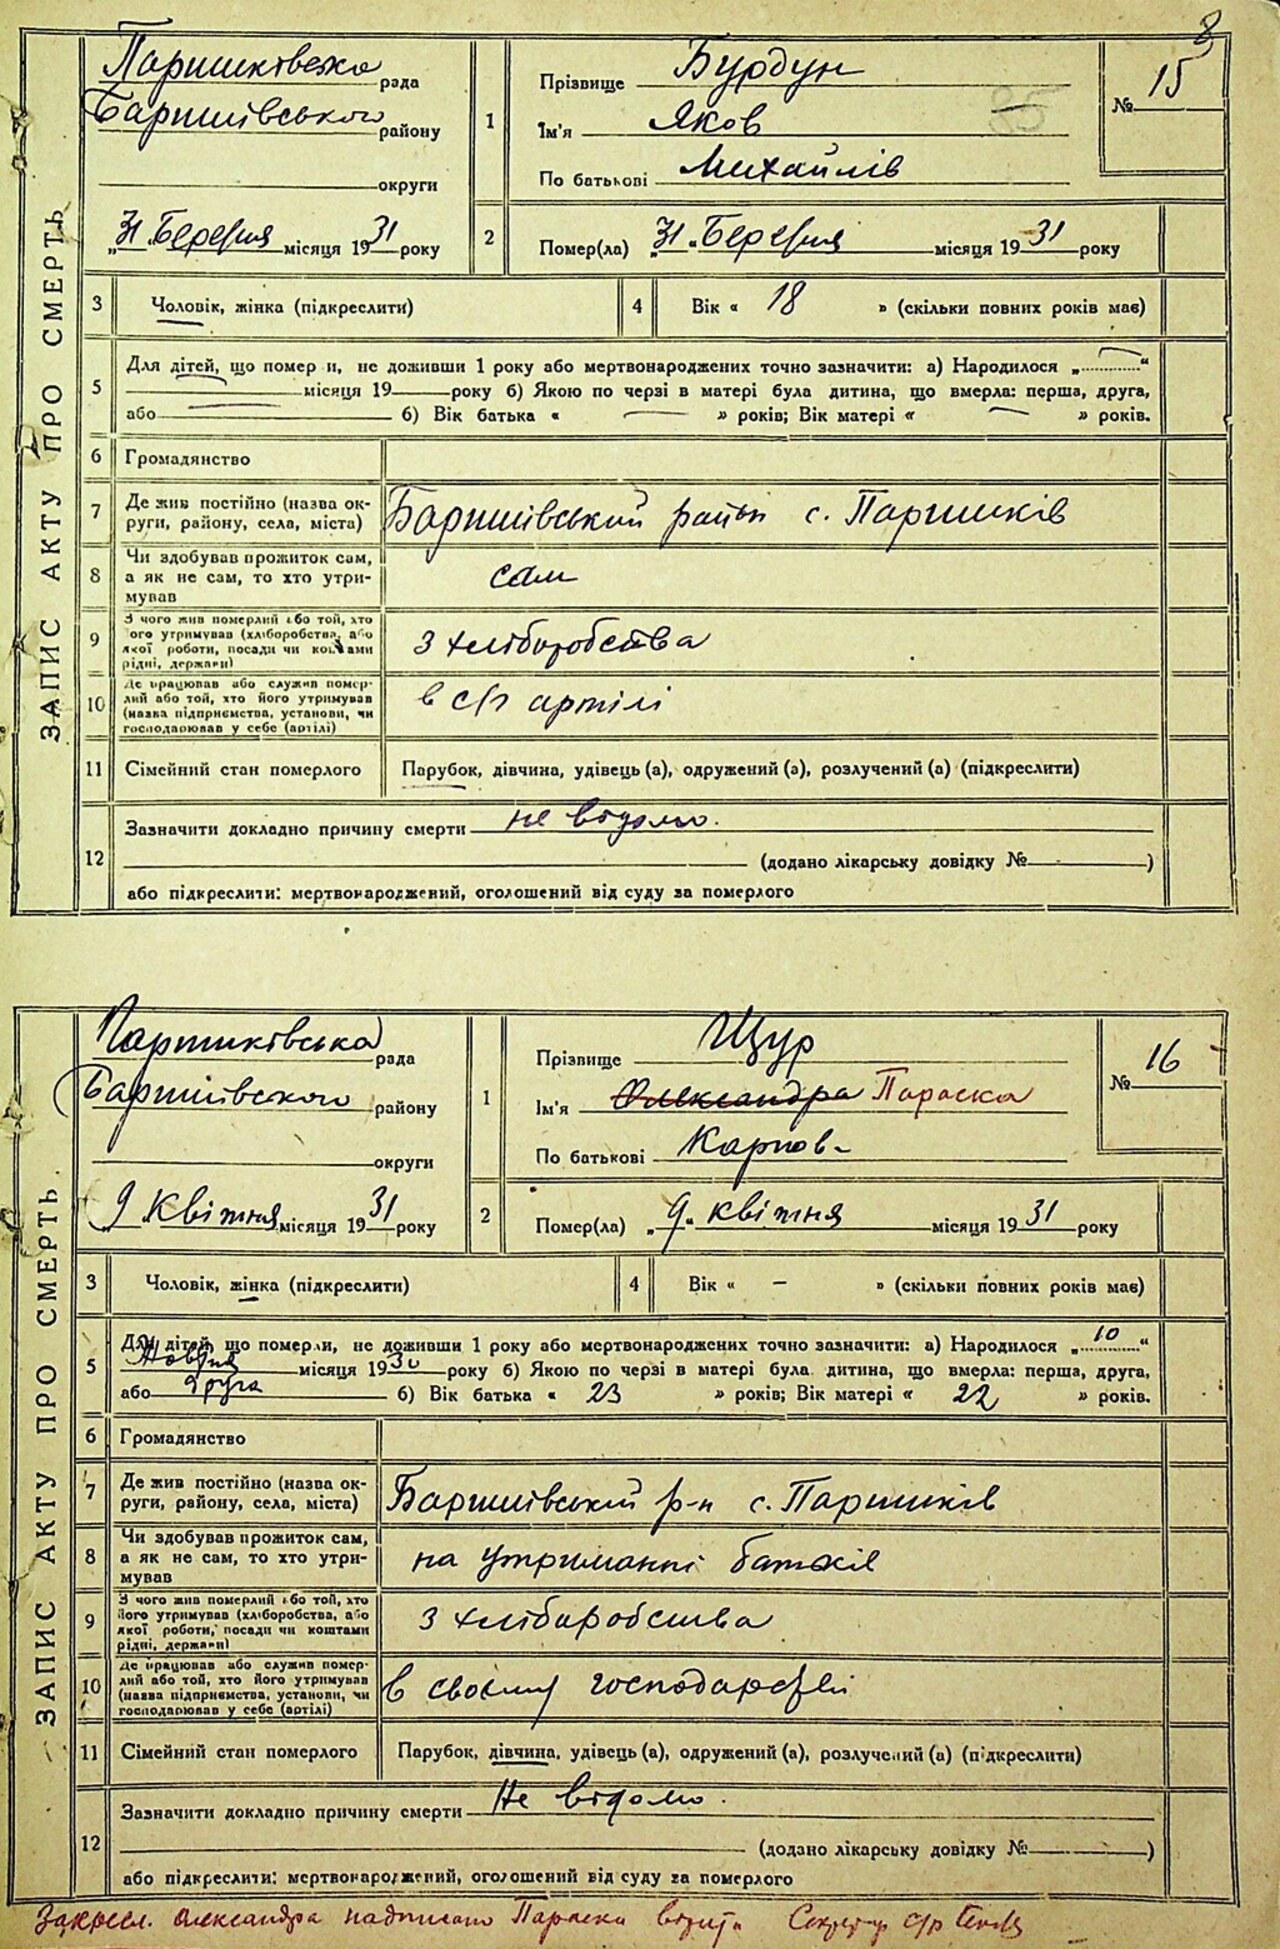 8
ЗАПИС АКТУ ПРО СМЕРТЬ
Паришківська рада
Баришівського району
округи
„31„ Березня місяця 1931 року
1
Прізвище Бурдун
Ім'я Яков
По батькові Михайлів
№ 15
2
Помер(ла) „31„ Березня місяця 1931 року
3 Чоловік, жінка (підкреслити)
4 Вік « 18 » (скільки повних років має)
5 Для дітей, що помер и, не доживши 1 року або мертвонароджених точно зазначити: а) Народилося „ “
місяця 19 року б) Якою по черзі в матері була дитина, що вмерла: перша, друга,
або б) Вік батька « — » років; Вік матері « — » років.
6 Громадянство
7 Де жив постійно (назва ок-
руги, району, села, міста)
Баришівський район с. Паришків
8 Чи здобував прожиток сам,
а як не сам, то хто утри-
мував
сам
9 З чого жив померлий або той, хто
його утримував (хліборобства, або
якої роботи, посади чи коштами
рідні, держави)
З хліборобства
10 Де працював або служив помер-
лий або той, хто його утримував
(назва підприємства, установи, чи
господарював у себе (артілі)
в с/г артілі
11 Сімейний стан померлого Парубок, дівчина, удівець (а), одружений (а), розлучений (а) (підкреслити)
12 Зазначити докладно причину смерти не відомо.
(додано лікарську довідку № )
або підкреслити: мертвонароджений, оголошений від суду за померлого
ЗАПИС АКТУ ПРО СМЕРТЬ.
Паришківська рада
Баришівського району
округи
9 Квітня місяця 1931 року
1
Прізвище Щур
Ім'я Олександра Параска
По батькові Карпов-
№ 16
2
Помер(ла) „9„ квітня місяця 1931 року
3 Чоловік, жінка (підкреслити)
4 Вік « – » (скільки повних років має)
5 Для дітей, що померли, не доживши 1 року або мертвонароджених точно зазначити: а) Народилося „10“
Жовтня місяця 1930 року б) Якою по черзі в матері була дитина, що вмерла: перша, друга,
або друга б) Вік батька « 23 » років; Вік матері « 22 » років.
6 Громадянство
7 Де жив постійно (назва ок-
руги, району, села, міста)
Баришівський р-н с. Паришків
8 Чи здобував прожиток сам,
а як не сам, то хто утри-
мував
на утриманні батьків
9 З чого жив померлий або той, хто
його утримував (хліборобства, або
якої роботи, посади чи коштами
рідні, держави)
З хліборобства
10 Де працював або служив помер-
лий або той, хто його утримував
(назва підприємства, установи, чи
господарював у себе (артілі)
в своєму господарстві
11 Сімейний стан померлого Парубок, дівчина, удівець (а), одружений (а), розлучений (а) (підкреслити)
12 Зазначити докладно причину смерти Не відомо.
(додано лікарську довідку № )
або підкреслити: мертвонароджений, оголошений від суду за померлого
Закресл. Олександра надписано Параска Секретар с/р